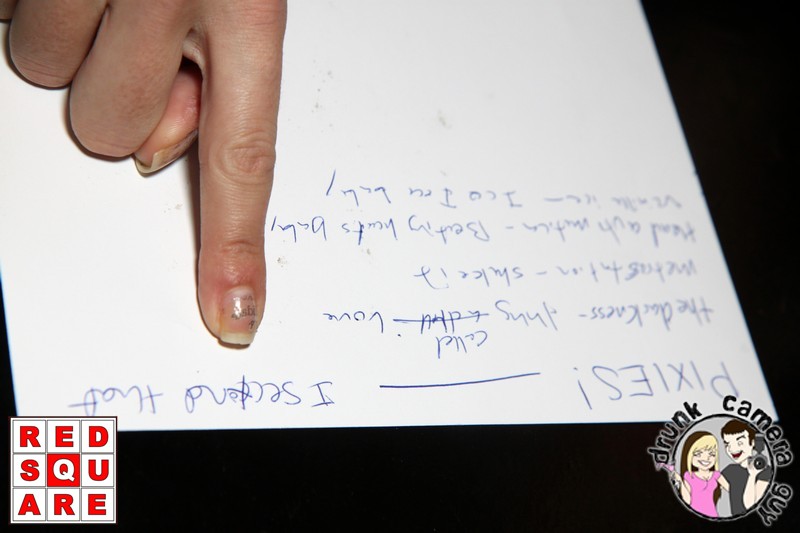 PIXIES! I second that
the darkness - thing called Love
metrostation - shake it
Head automatica - Beating hearts baby
vanilla ice - Ice Ice baby
RED
SQU
ARE
drunk camera guy